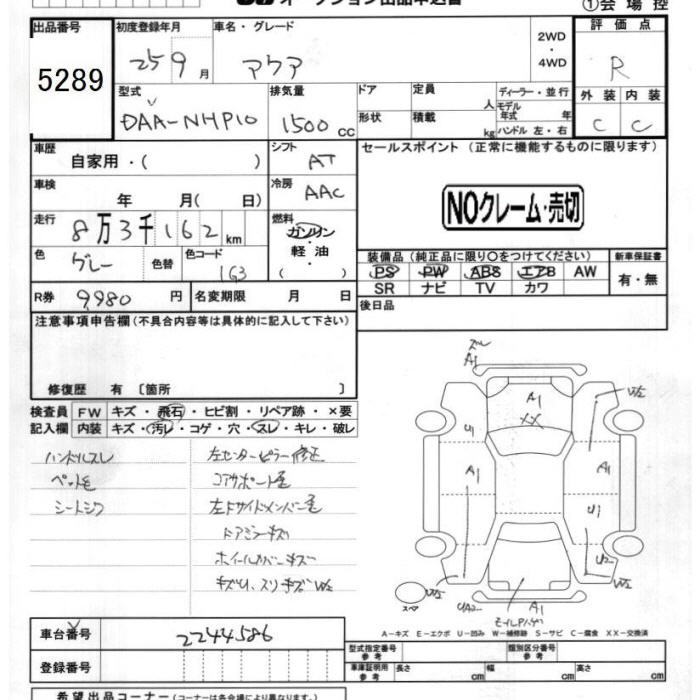 ①会場控
出品番号 初度登録年月 車名・グレード 評価点
5289 25 9 月 アクア 2WD・4WD R
型式 排気量 ドア 定員 人 ディーラー・並行 外装 内装
DAA-NHP10 1500 cc 形状 積載 kg モデル年式 年 ハンドル 左・右 C C
車歴 自家用・( ) シフト AT セールスポイント(正常に機能するものに限ります)
車検 年 月( 日) 冷房 AAC NOクレーム・売切
走行 8万3千162 km 燃料 ガソリン・軽油・( )
色 グレー 色替 色コード 1G3 装備品(純正品に限り○をつけてください) 新車保証書
PS PW ABS エアB AW 有・無
SR ナビ TV カワ
R券 9,980 円 名変期限 月 日 後日品
注意事項申告欄(不具合内容等は具体的に記入して下さい)
修復歴 有〔箇所 〕
検査員 FW キズ・飛石・ヒビ割・リペア跡・×要
記入欄 内装 キズ・汚レ・コゲ・穴・スレ・キレ・破レ
ハンドルスレ 左センターピラー修正
ペット毛 コアサポート歪
シートシワ 左Fサイドメンバー歪
ドアミラーキズ
ホイールカバーキズ
キズU、スリキズW2
ズレ
A1
A1
XX
W2
U1
A1
A1
U1
U2
W2
W2
UA2
A1
スペア
A-キズ E-エクボ U-凹み W-補修跡 S-サビ C-腐食 XX-交換済
車台番号 2244586
登録番号
型式指定番号 参考 類別区分番号 参考
車庫証明用 参考 長さ cm 幅 cm 高さ cm
希望出品コーナー(コーナーは各会場により異なります。)